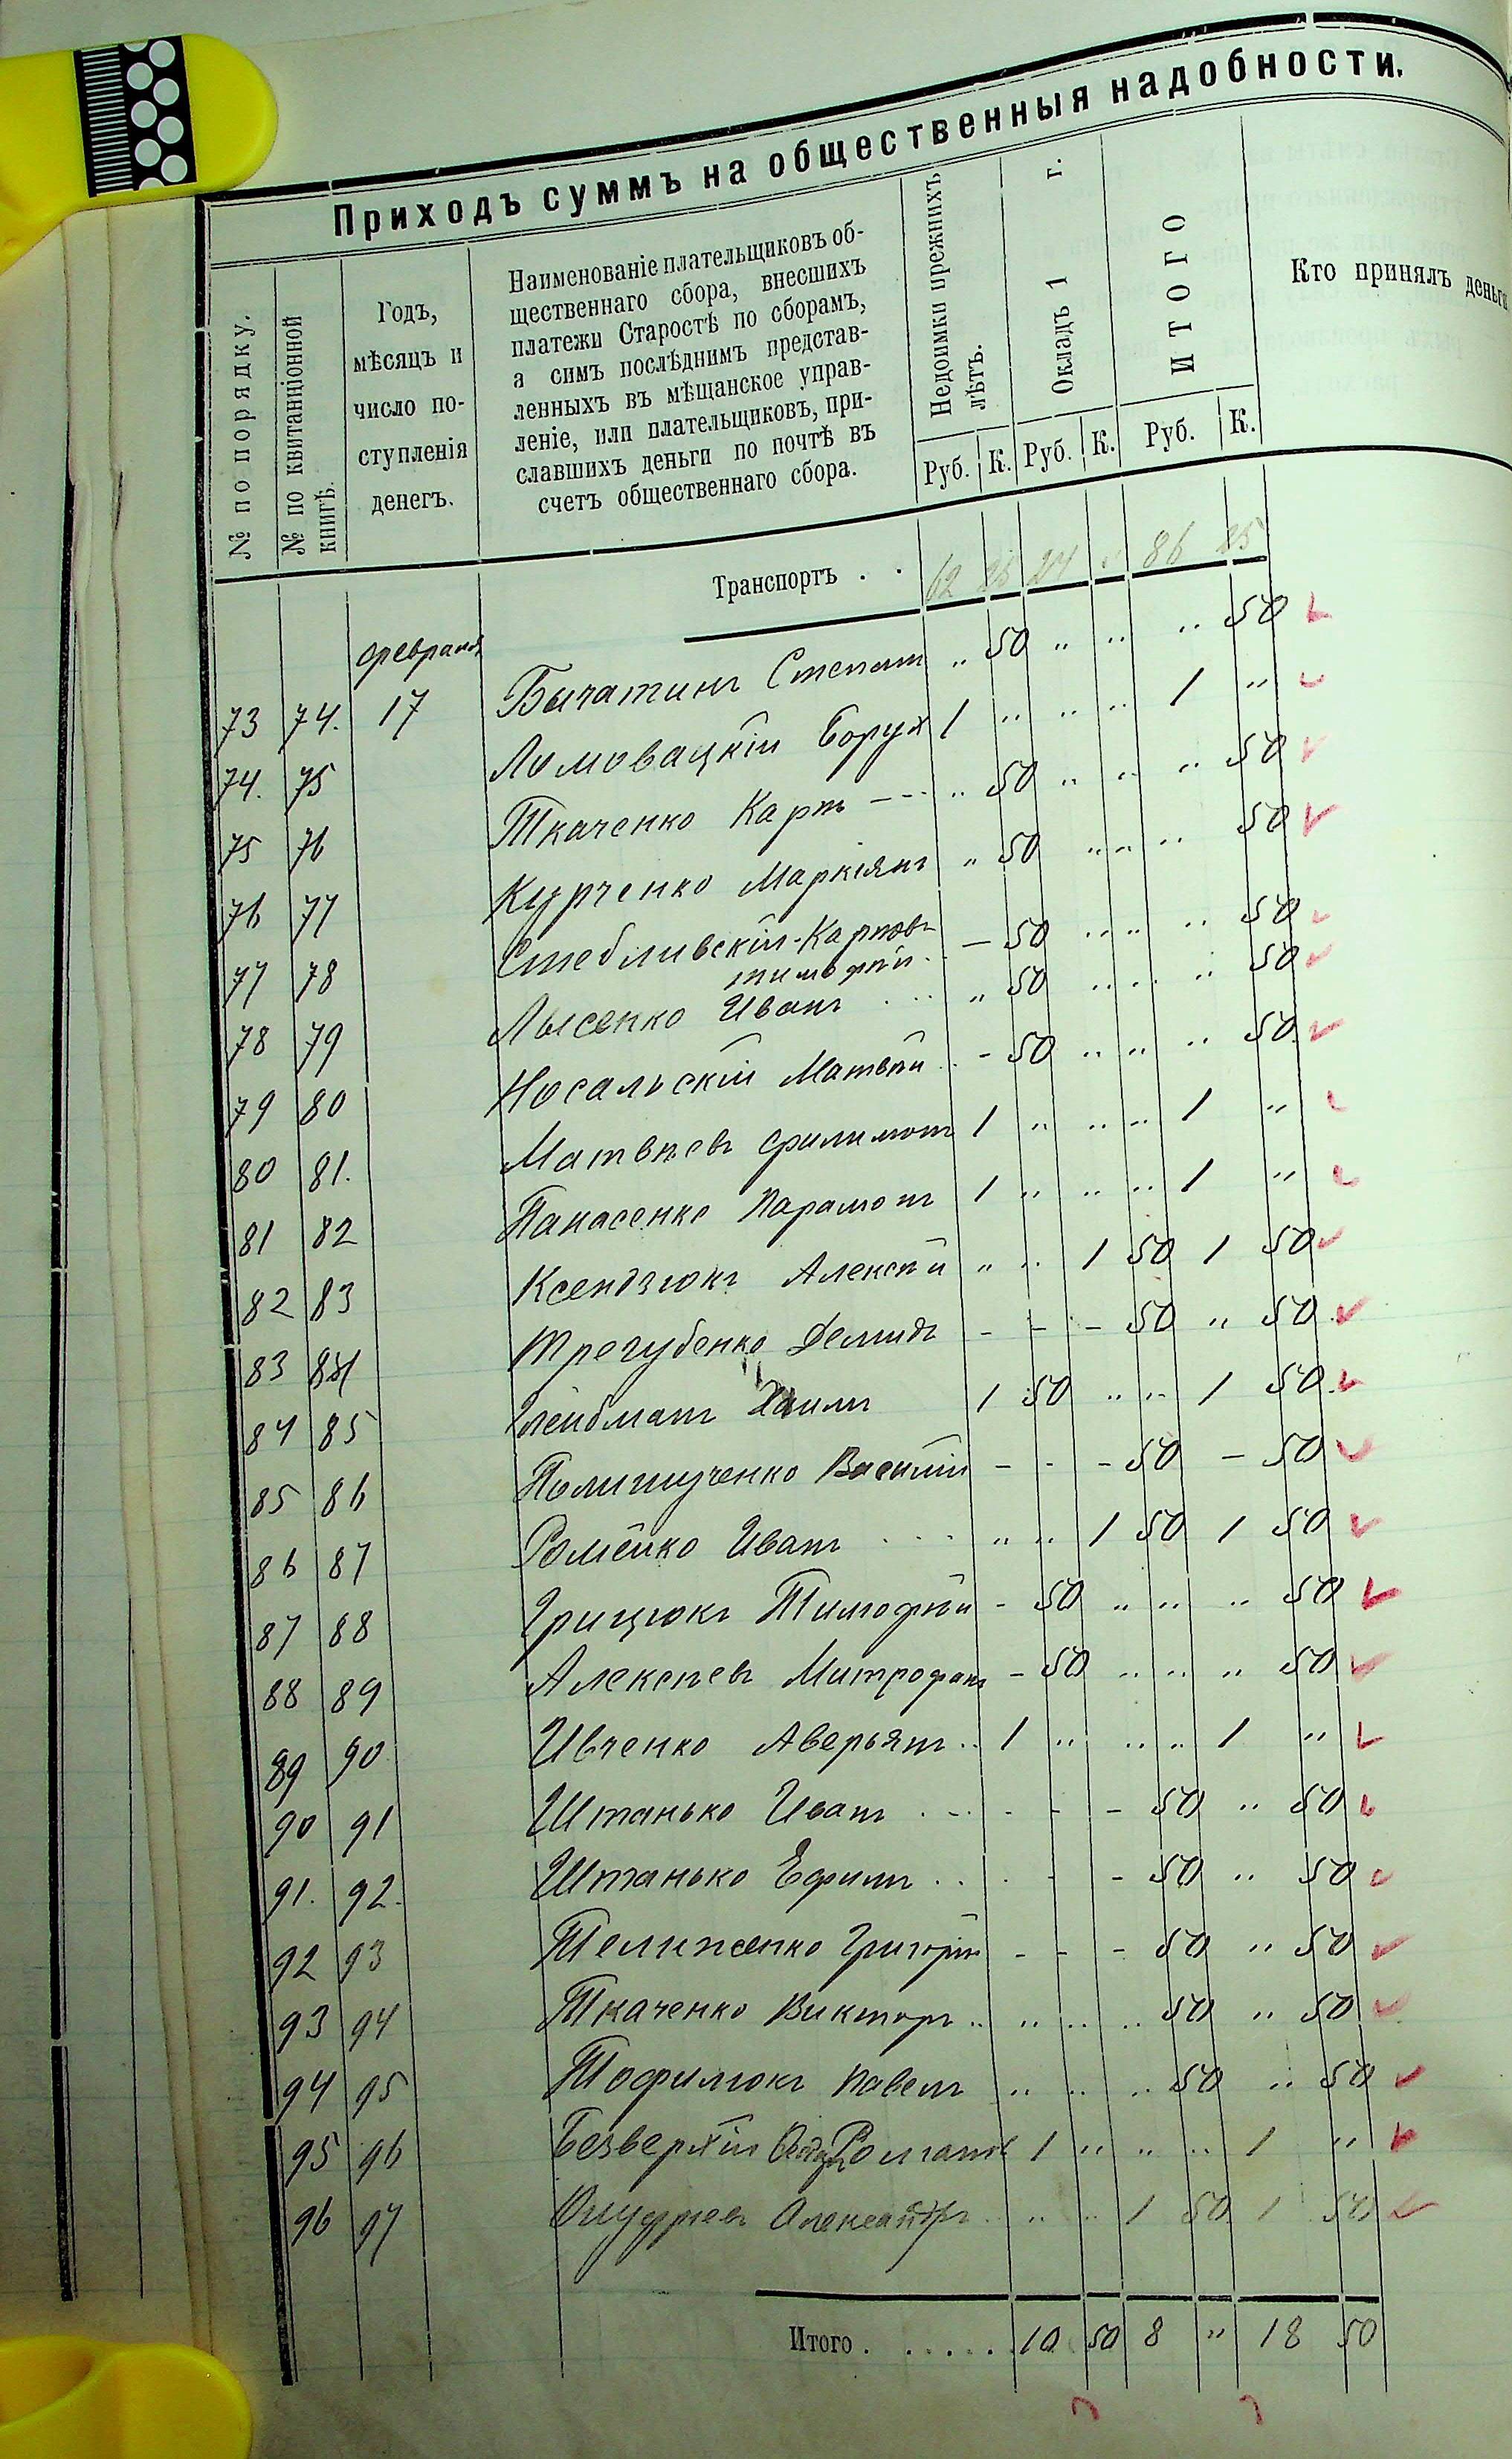 Приходъ суммъ на общественныя надобности.
№ по порядку.
№ по квитанціонной
книгѣ.
Годъ,
мѣсяцъ и
число по-
ступленія
денегъ.
Наименованіе плательщиковъ об-
щественнаго сбора, внесшихъ
платежи Старостѣ по сборамъ,
а симъ послѣднимъ представ-
ленныхъ въ мѣщанское управ-
леніе, или плательщиковъ, при-
славшихъ деньги по почтѣ въ
счетъ общественнаго сбора.
Недоимки прежнихъ
лѣтъ.
Окладъ 1 г.
ИТОГО
Кто принялъ деньги
Руб. К. Руб. К. Руб. К.
Транспортъ . . 62 25 24 " 86 25
февраля
73 74. 17 Бычатинъ Степанъ " 50 " " " 50
74. 75 Ломовацкій Борух 1 " " " 1 "
75 76 Ткаченко Карпъ --- " 50 " " " 50
76 77 Курченко Маркіянъ " 50 " " " 50
77 78 Стебливскій-Карповъ — 50 " " " 50
тимофѣй
78 79 Лысенко Иванъ " 50 " " " 50
79 80 Носальскій Матвѣй - 50 " " " 50
80 81. Матвѣевъ Филимонъ 1 " " " 1 "
81 82 Панасенко Парамонъ 1 " " " 1 "
82 83 Ксендзюкъ Алексѣй " " 1 50 1 50
83 84 Трегубенко Демидъ - - - 50 " 50
84 85 Глейбманъ Хаимъ 1 50 " " 1 50
85 86 Полищученко Василій - - - 50 - 50
86 87 Ромейко Иванъ " " 1 50 1 50
87 88 Грицюкъ Тимофѣй - 50 " " " 50
88 89 Алексѣевъ Митрофанъ - 50 " " " 50
89 90 Ивченко Аверьянъ .. 1 " " " 1 "
90 91 Штанько Иванъ - - - 50 " 50
91. 92. Штанько Ефимъ . . . - - 50 " 50
92 93 Телиженко Григорій - - - 50 " 50
93 94 Ткаченко Викторъ .. " " " 50 " 50
94 95 Тофилюкъ Павелъ " " " 50 " 50
95 96 Безверхій Романъ 1 " " " 1 "
96 97 Александръ " " 1 50 1 50
Итого . . . . . . 10 50 8 " 18 50